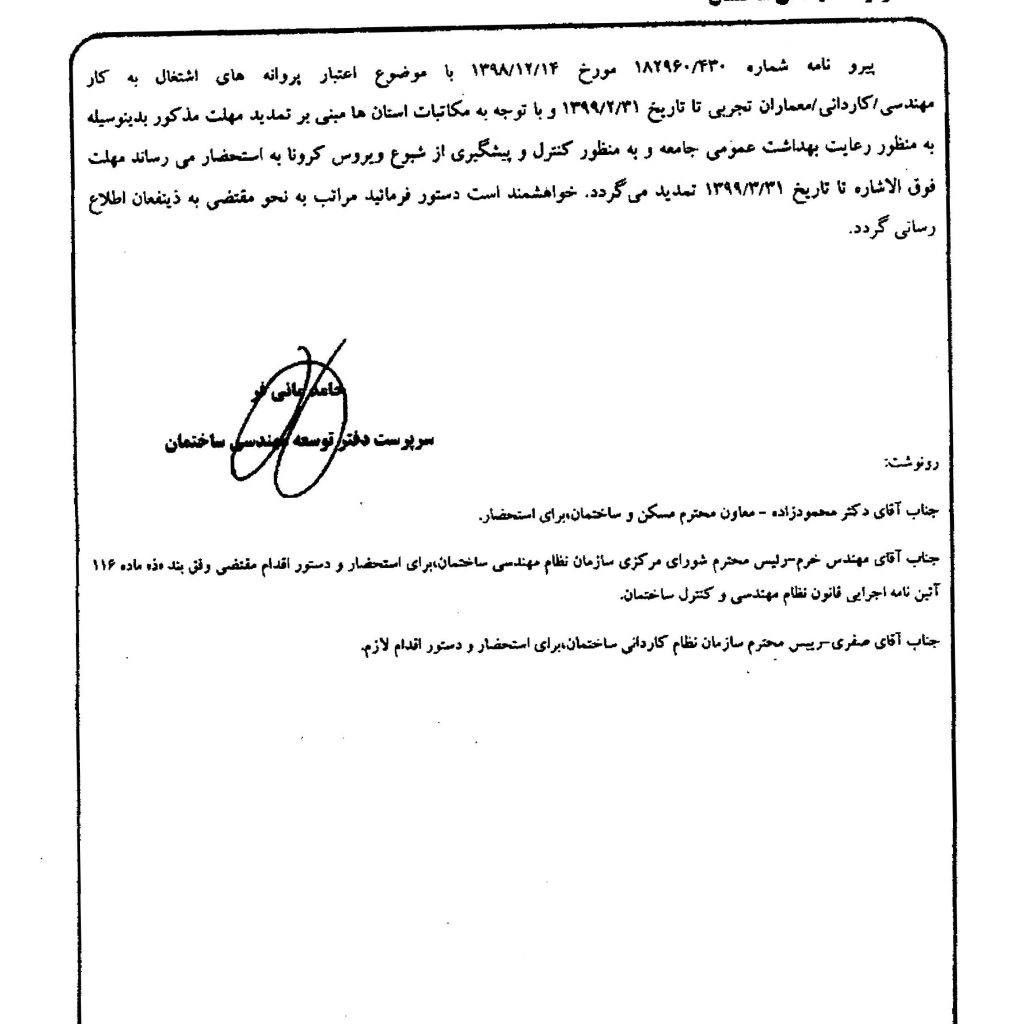 پیرو نامه شماره ۱۸۲۹۶۰/۴۳۰ مورخ ۱۳۹۸/۱۲/۱۴ با موضوع اعتبار پروانه های اشتغال به کار
مهندسی/کاردانی/معماران تجربی تا تاریخ ۱۳۹۹/۲/۳۱ و با توجه به مکاتبات استان ها مبنی بر تمدید مهلت مذکور بدینوسیله
به منظور رعایت بهداشت عمومی جامعه و به منظور کنترل و پیشگیری از شیوع ویروس کرونا به استحضار می رساند مهلت
فوق الاشاره تا تاریخ ۱۳۹۹/۳/۳۱ تمدید می گردد. خواهشمند است دستور فرمائید مراتب به نحو مقتضی به ذینفعان اطلاع
رسانی گردد.
حامد مانی فر
سرپرست دفتر توسعه مهندسی ساختمان
رونوشت:
جناب آقای دکتر محمودزاده - معاون محترم مسکن و ساختمان،برای استحضار.
جناب آقای مهندس خرم-رئیس محترم شورای مرکزی سازمان نظام مهندسی ساختمان،برای استحضار و دستور اقدام مقتضی وفق بند «ذ» ماده ۱۱۶
آئین نامه اجرایی قانون نظام مهندسی و کنترل ساختمان.
جناب آقای صفری-رییس محترم سازمان نظام کاردانی ساختمان،برای استحضار و دستور اقدام لازم.